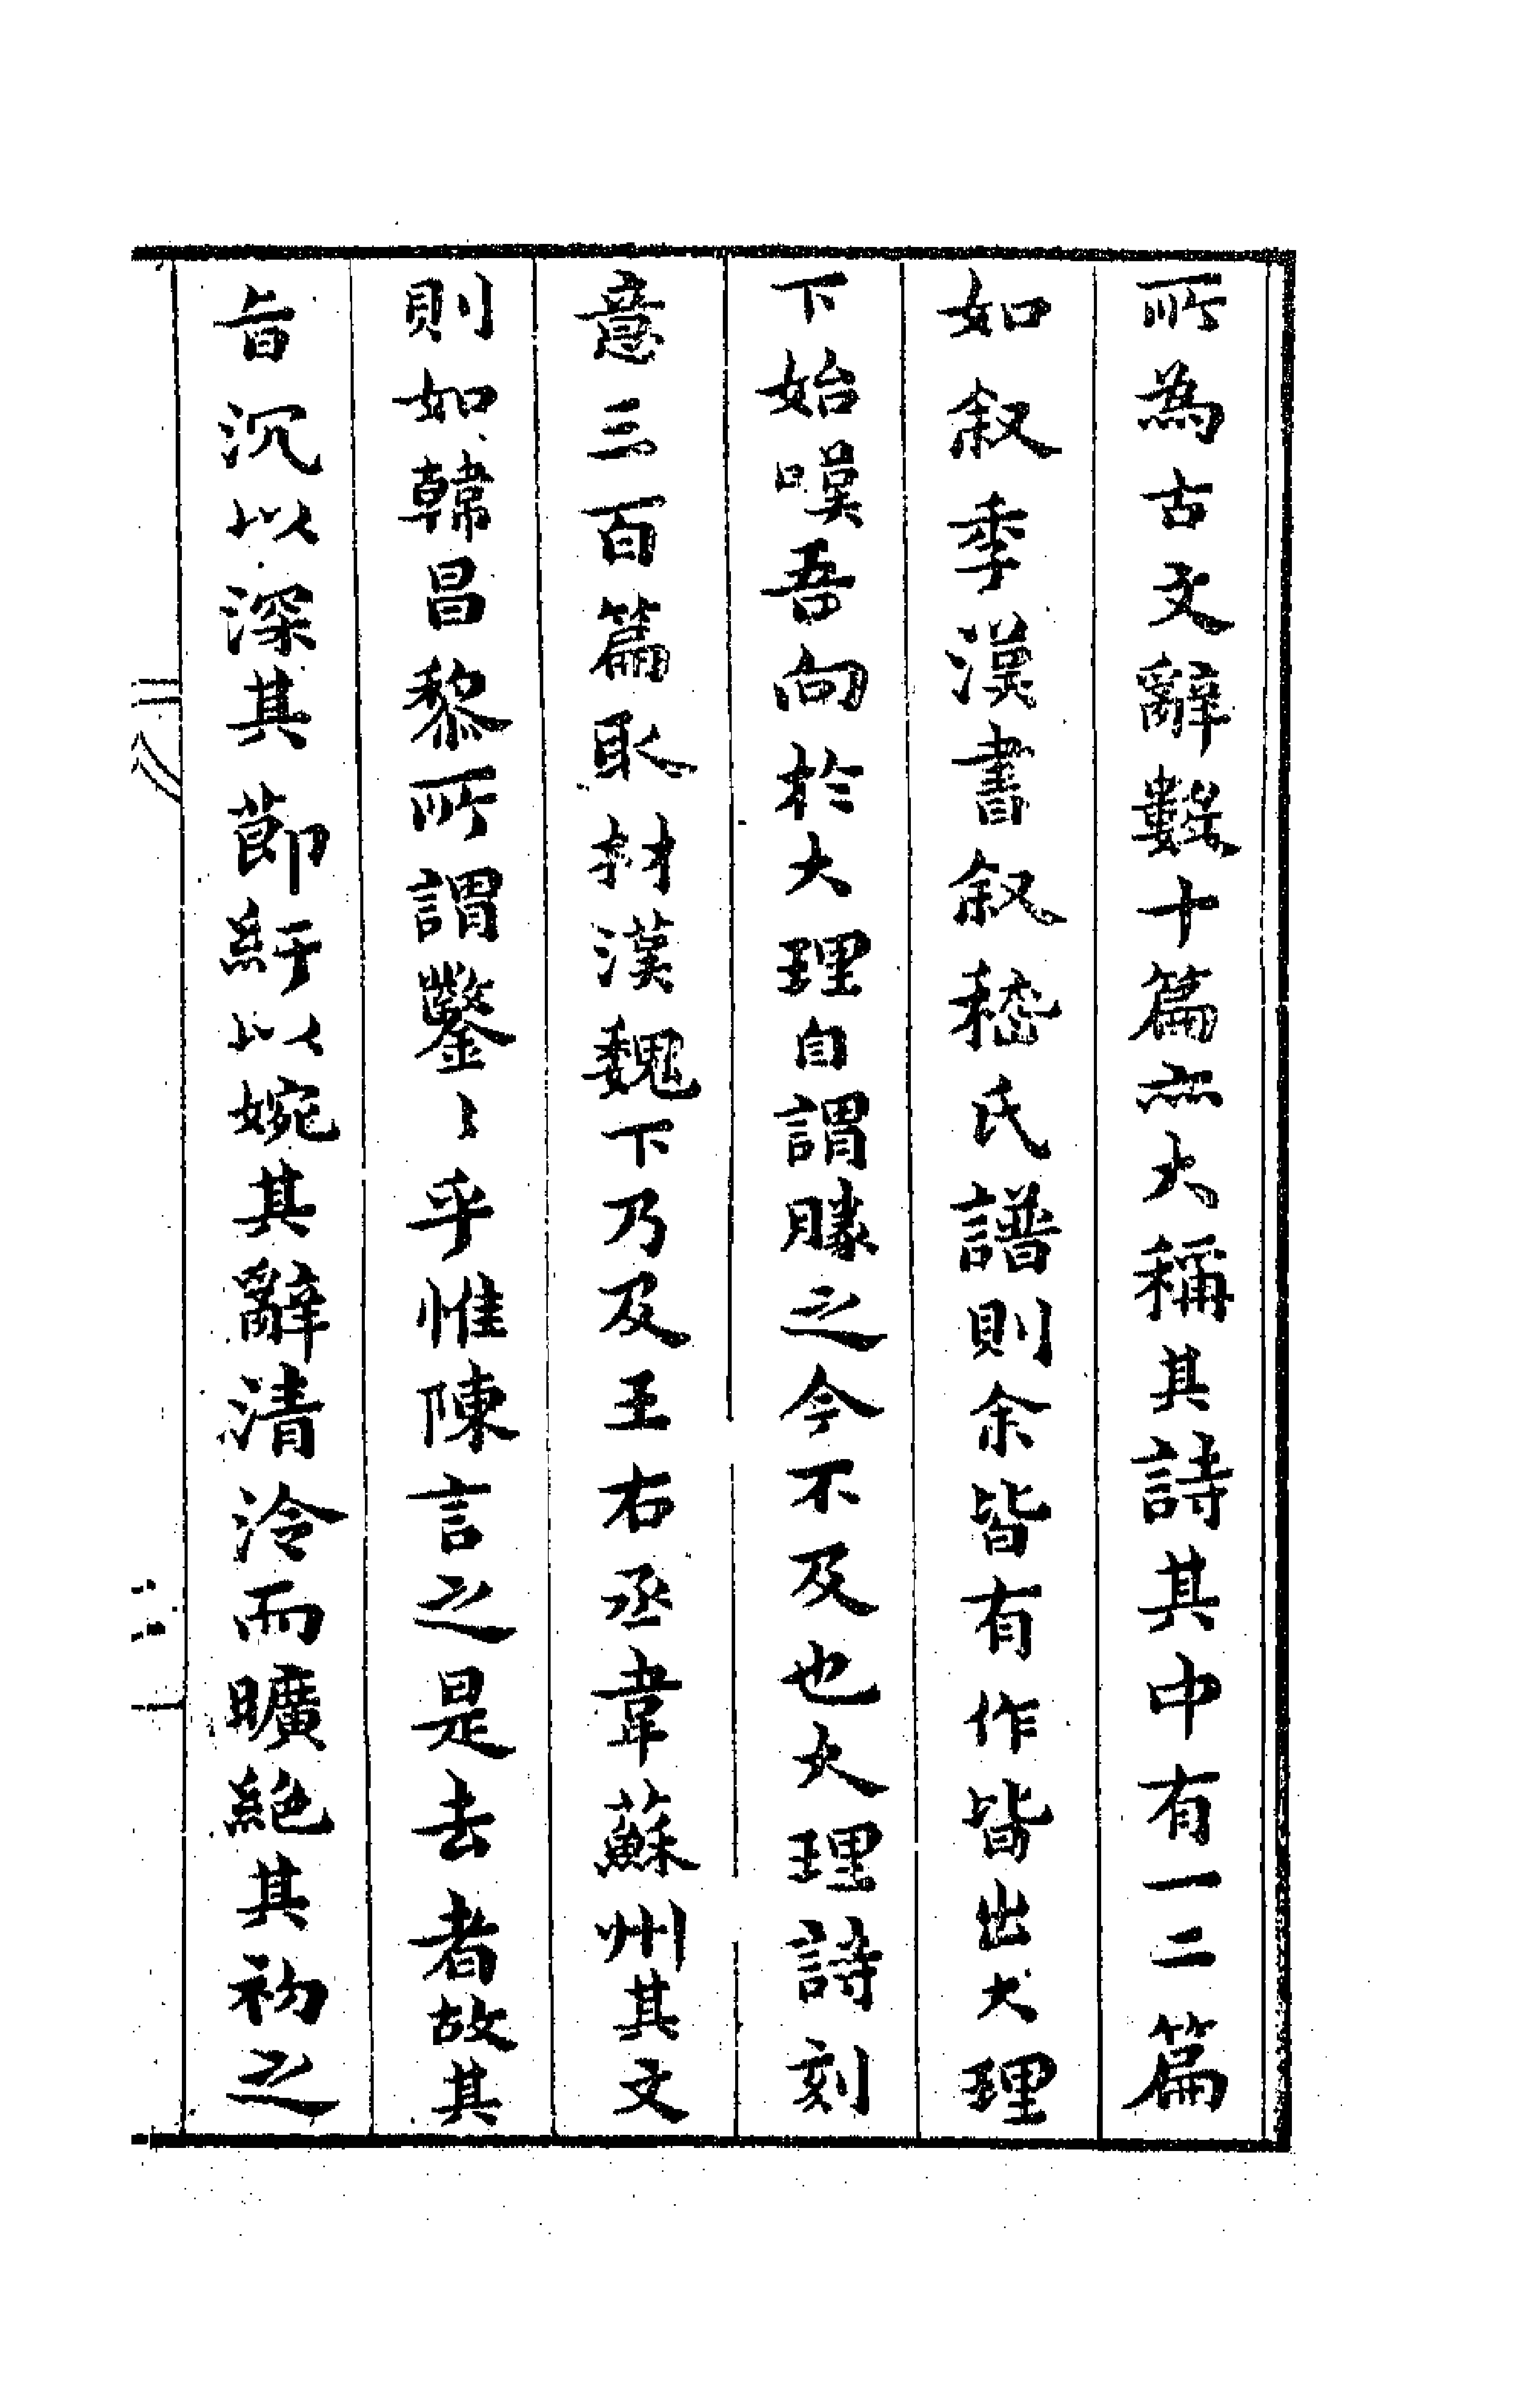 所為古文辭數十篇亦大稱其詩其中有一二篇
如叙季漢書叙嵇氏譜則余皆有作皆出大理
下始嘆吾向於大理自謂勝之今不及也大理詩刻
意三百篇取材漢魏下乃及王右丞韋蘇州其文
則如韓昌黎所謂鑿〻乎惟陳言之是去者故其
旨沉以深其節紆以婉其辭清泠而曠絶其初之